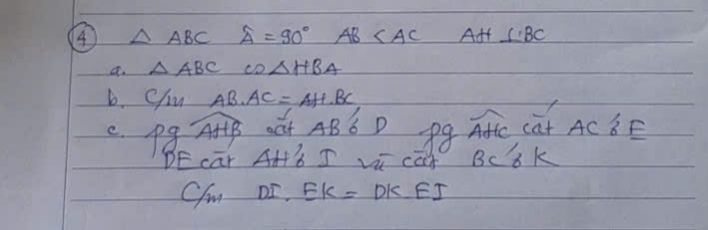 ④ △ ABC Â = 90° AB < AC AH ⊥ BC
a. △ ABC ∽ △ HBA
b. C/m AB.AC = AH.BC
c. pg AHB cắt AB ở D pg AHC cắt AC ở E
DE cắt AH ở I và cắt BC ở K
C/m DI. EK = DK. EI